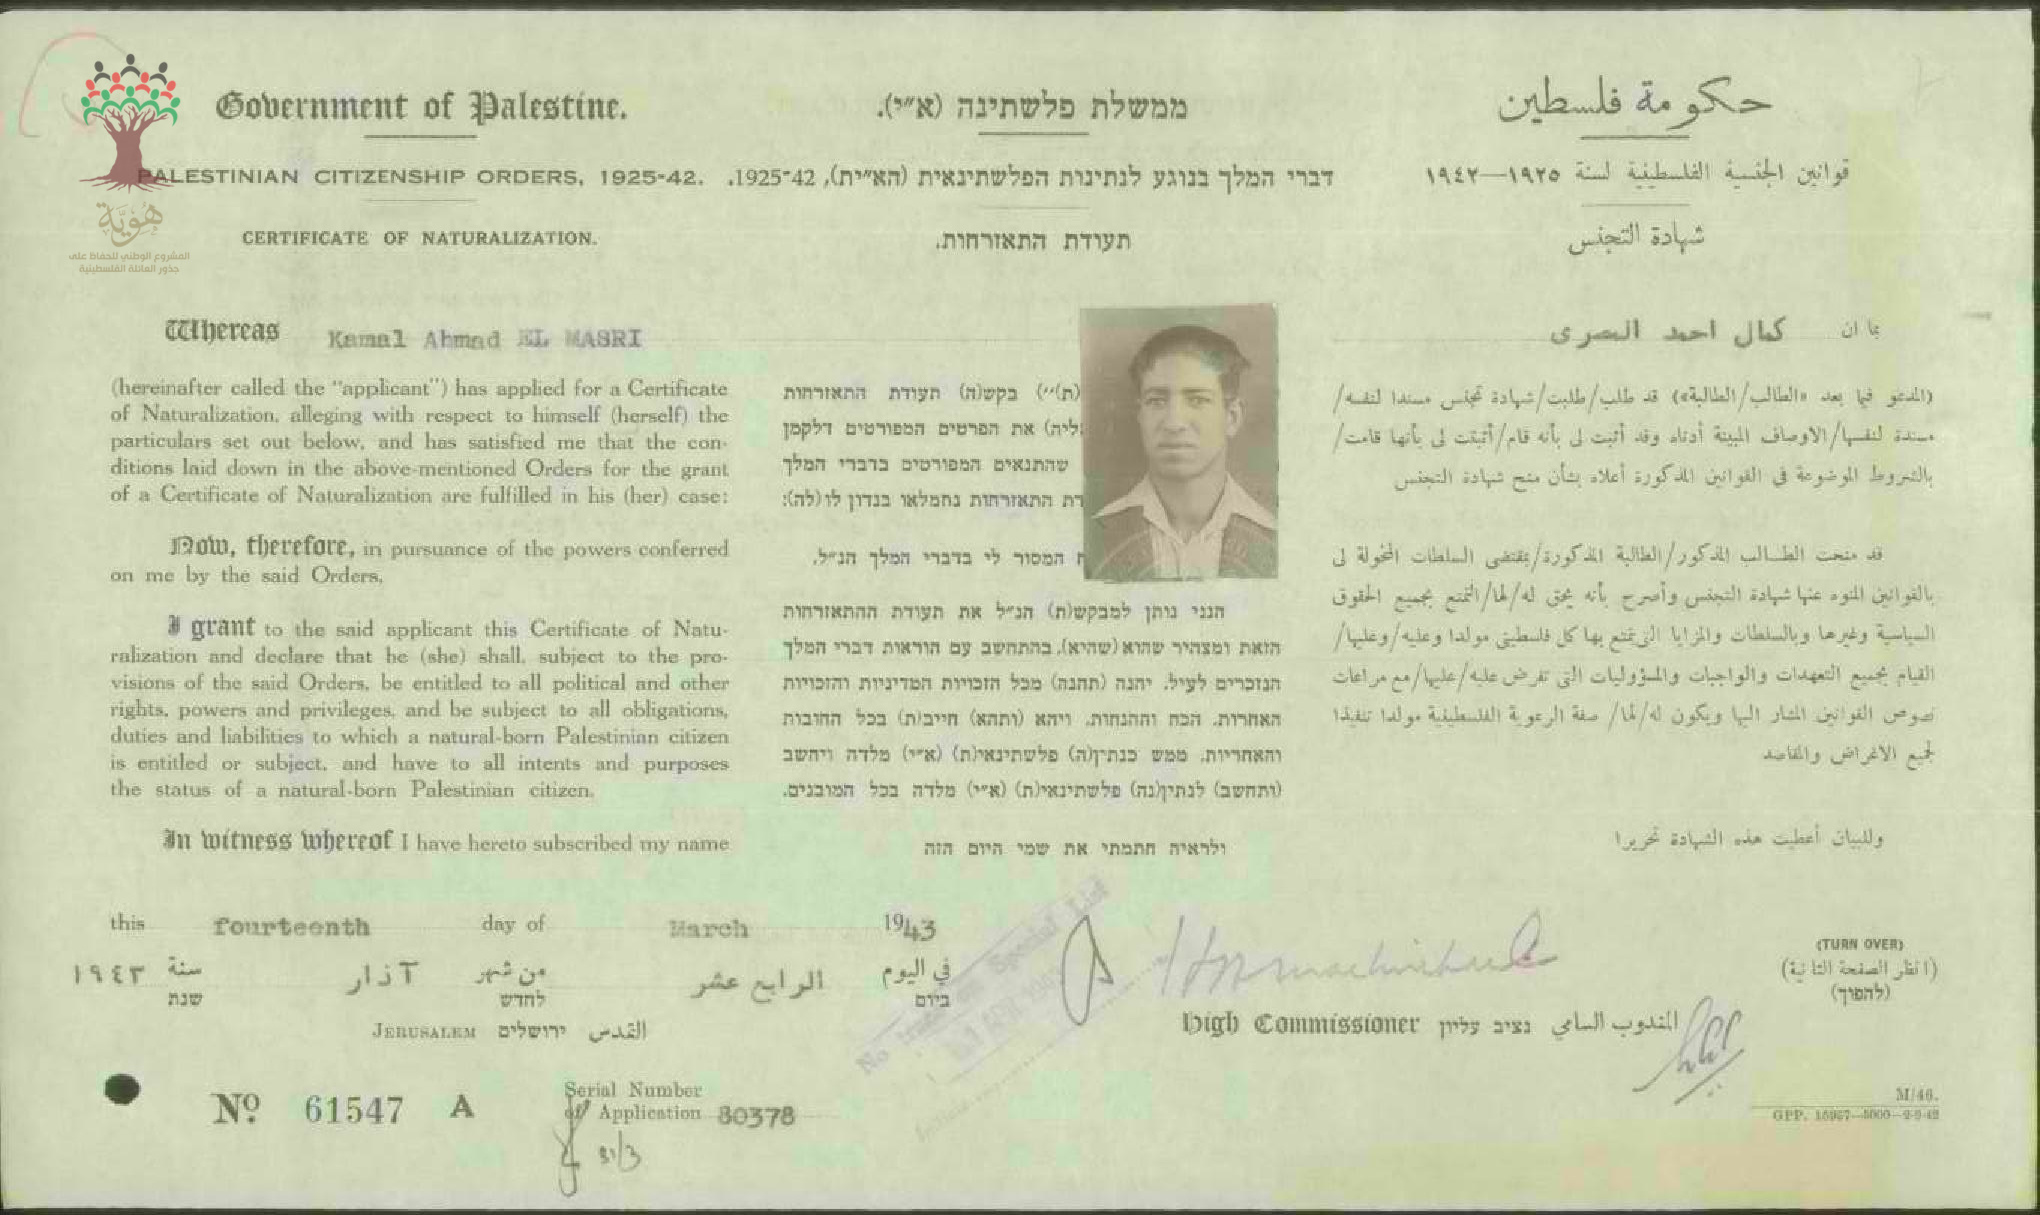 Government of Palestine.
PALESTINIAN CITIZENSHIP ORDERS, 1925-42.
CERTIFICATE OF NATURALIZATION.
ממשלת פלשתינה (א״י).
דברי המלך בנוגע לנתינות הפלשתינאית (הא״ית), 1925-42.
תעודת התאזרחות.
حكومة فلسطين
قوانين الجنسية الفلسطينية لسنة ١٩٢٥—١٩٤٢
شهادة التجنس
هُوِيَّة
المشروع الوطني للحفاظ على
جذور العائلة الفلسطينية
Whereas Kamal Ahmad EL MASRI
(hereinafter called the "applicant") has applied for a Certificate
of Naturalization, alleging with respect to himself (herself) the
particulars set out below, and has satisfied me that the con-
ditions laid down in the above-mentioned Orders for the grant
of a Certificate of Naturalization are fulfilled in his (her) case:
Now, therefore, in pursuance of the powers conferred
on me by the said Orders,
I grant to the said applicant this Certificate of Natu-
ralization and declare that he (she) shall, subject to the pro-
visions of the said Orders, be entitled to all political and other
rights, powers and privileges, and be subject to all obligations,
duties and liabilities to which a natural-born Palestinian citizen
is entitled or subject, and have to all intents and purposes
the status of a natural-born Palestinian citizen.
In witness whereof I have hereto subscribed my name
(ת)״) בקש(ה) תעודת התאזרחות
ליה) את הפרטים המפורטים דלקמן
שהתנאים המפורטים בדברי המלך
דת התאזרחות נתמלאו בנדון לו (לה):
ת המסור לי בדברי המלך הנ״ל,
הנני נותן למבקש(ת) הנ״ל את תעודת ההתאזרחות
הזאת ומצהיר שהוא (שהיא), בהתחשב עם הוראות דברי המלך
הנזכרים לעיל, יהנה (תהנה) מכל הזכויות המדיניות והזכויות
האחרות, הכח וההנחות, ויהא (ותהא) חייב(ת) בכל החובות
והאחריות, ממש כנתין(ה) פלשתינאי(ת) (א״י) מלדה ויחשב
(ותחשב) לנתין(נה) פלשתינאי(ת) (א״י) מלדה בכל המובנים.
ולראיה חתמתי את שמי היום הזה
بما ان كمال احمد المصرى
(المدعو فيما بعد «الطالب/الطالبة») قد طلب/طلبت/شهادة تجنس مسندا لنفسه/
مسندة لنفسها/الاوصاف المبينة أدناه وقد أثبت لى بأنه قام/أثبتت لى بأنها قامت/
بالشروط الموضوعة في القوانين المذكورة أعلاه بشأن منح شهادة التجنس
قد منحت الطالب المذكور/الطالبة المذكورة/بمقتضى السلطات المخولة لى
بالقوانين المنوه عنها شهادة التجنس وأصرح بأنه يحق له/لها/التمتع بجميع الحقوق
السياسية وغيرها وبالسلطات والمزايا التى يتمتع بها كل فلسطينى مولدا وعليه/وعليها/
القيام بجميع التعهدات والواجبات والمسؤوليات التى تفرض عليه/عليها/مع مراعات
نصوص القوانين المشار اليها ويكون له/لها/ صفة الرعوية الفلسطينية مولدا تنفيذا
لجميع الاغراض والمقاصد
وللبيان أعطيت هذه الشهادة تحريرا
this fourteenth day of March 1943
في اليوم الرابع عشر من شهر آذار سنة ١٩٤٣
ביום לחדש שנת
JERUSALEM ירושלים القدس
High Commissioner נציב עליון المندوب السامي
(TURN OVER)
(انظر الصفحة الثانية)
(להפוך)
No trace on Special List
Nº 61547 A
Serial Number
of Application 80378
31/3
M/46.
GPP. 15957—5000—9-9-42